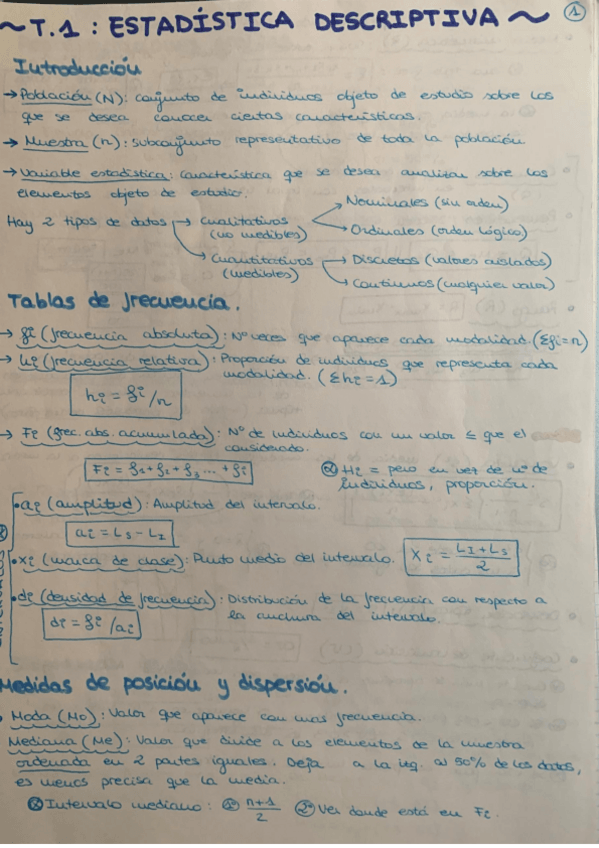 ~T.1 : ESTADÍSTICA DESCRIPTIVA~ 1
Introducción
→ Población (N): conjunto de individuos objeto de estudio sobre los
que se desea conocer ciertas características.
→ Muestra (n): subconjunto representativo de toda la población
→ Variable estadística: Característica que se desea analizar sobre los
elementos objeto de estudio.
Hay 2 tipos de datos → Cualitativos (no medibles) → Nominales (sin orden)
→ Ordinales (orden lógico)
→ Cuantitativos (medibles) → Discretos (valores aislados)
→ Continuos (cualquier valor)
Tablas de frecuencia.
→ fi (frecuencia absoluta): Nº veces que aparece cada modalidad. (Σfi=n)
→ hi (frecuencia relativa): Proporción de individuos que representa cada
modalidad. (Σhi=1)
hi = fi/n
→ Fi (frec. abs. acumulada): Nº de individuos con un valor ≤ que el
considerado.
Fi = f1+f2+f3...+fi
Hi = pero en vez de nº de
individuos, proporción.
• ai (amplitud): Amplitud del intervalo.
ai = Ls - LI
• xi (marca de clase): Punto medio del intervalo. Xi = LI+Ls / 2
• di (densidad de frecuencia): Distribución de la frecuencia con respecto a
la anchura del intervalo.
di = fi/ai
Medidas de posición y dispersión.
• Moda (Mo): Valor que aparece con mas frecuencia.
Mediana (Me): Valor que divide a los elementos de la muestra
ordenada en 2 partes iguales. Deja a la izq. al 50% de los datos,
es menos precisa que la media.
Intervalo mediano: 1º n+1 / 2 2º Ver donde está en Fi.